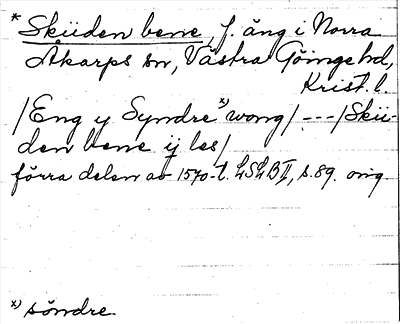 * Skiiden bene, f. äng i Norra
Åkarps sn, Västra Göinge hd,
Krist. l.
/Eng y Syndre *) wong/ --- /Skii-
den bene ij les/
förra delen av 1570-t. LSLB II, s. 89. orig
*) söndre.